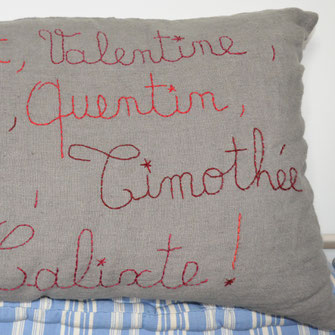 , Valentine,
, Quentin,
, Timothée
Calixte !